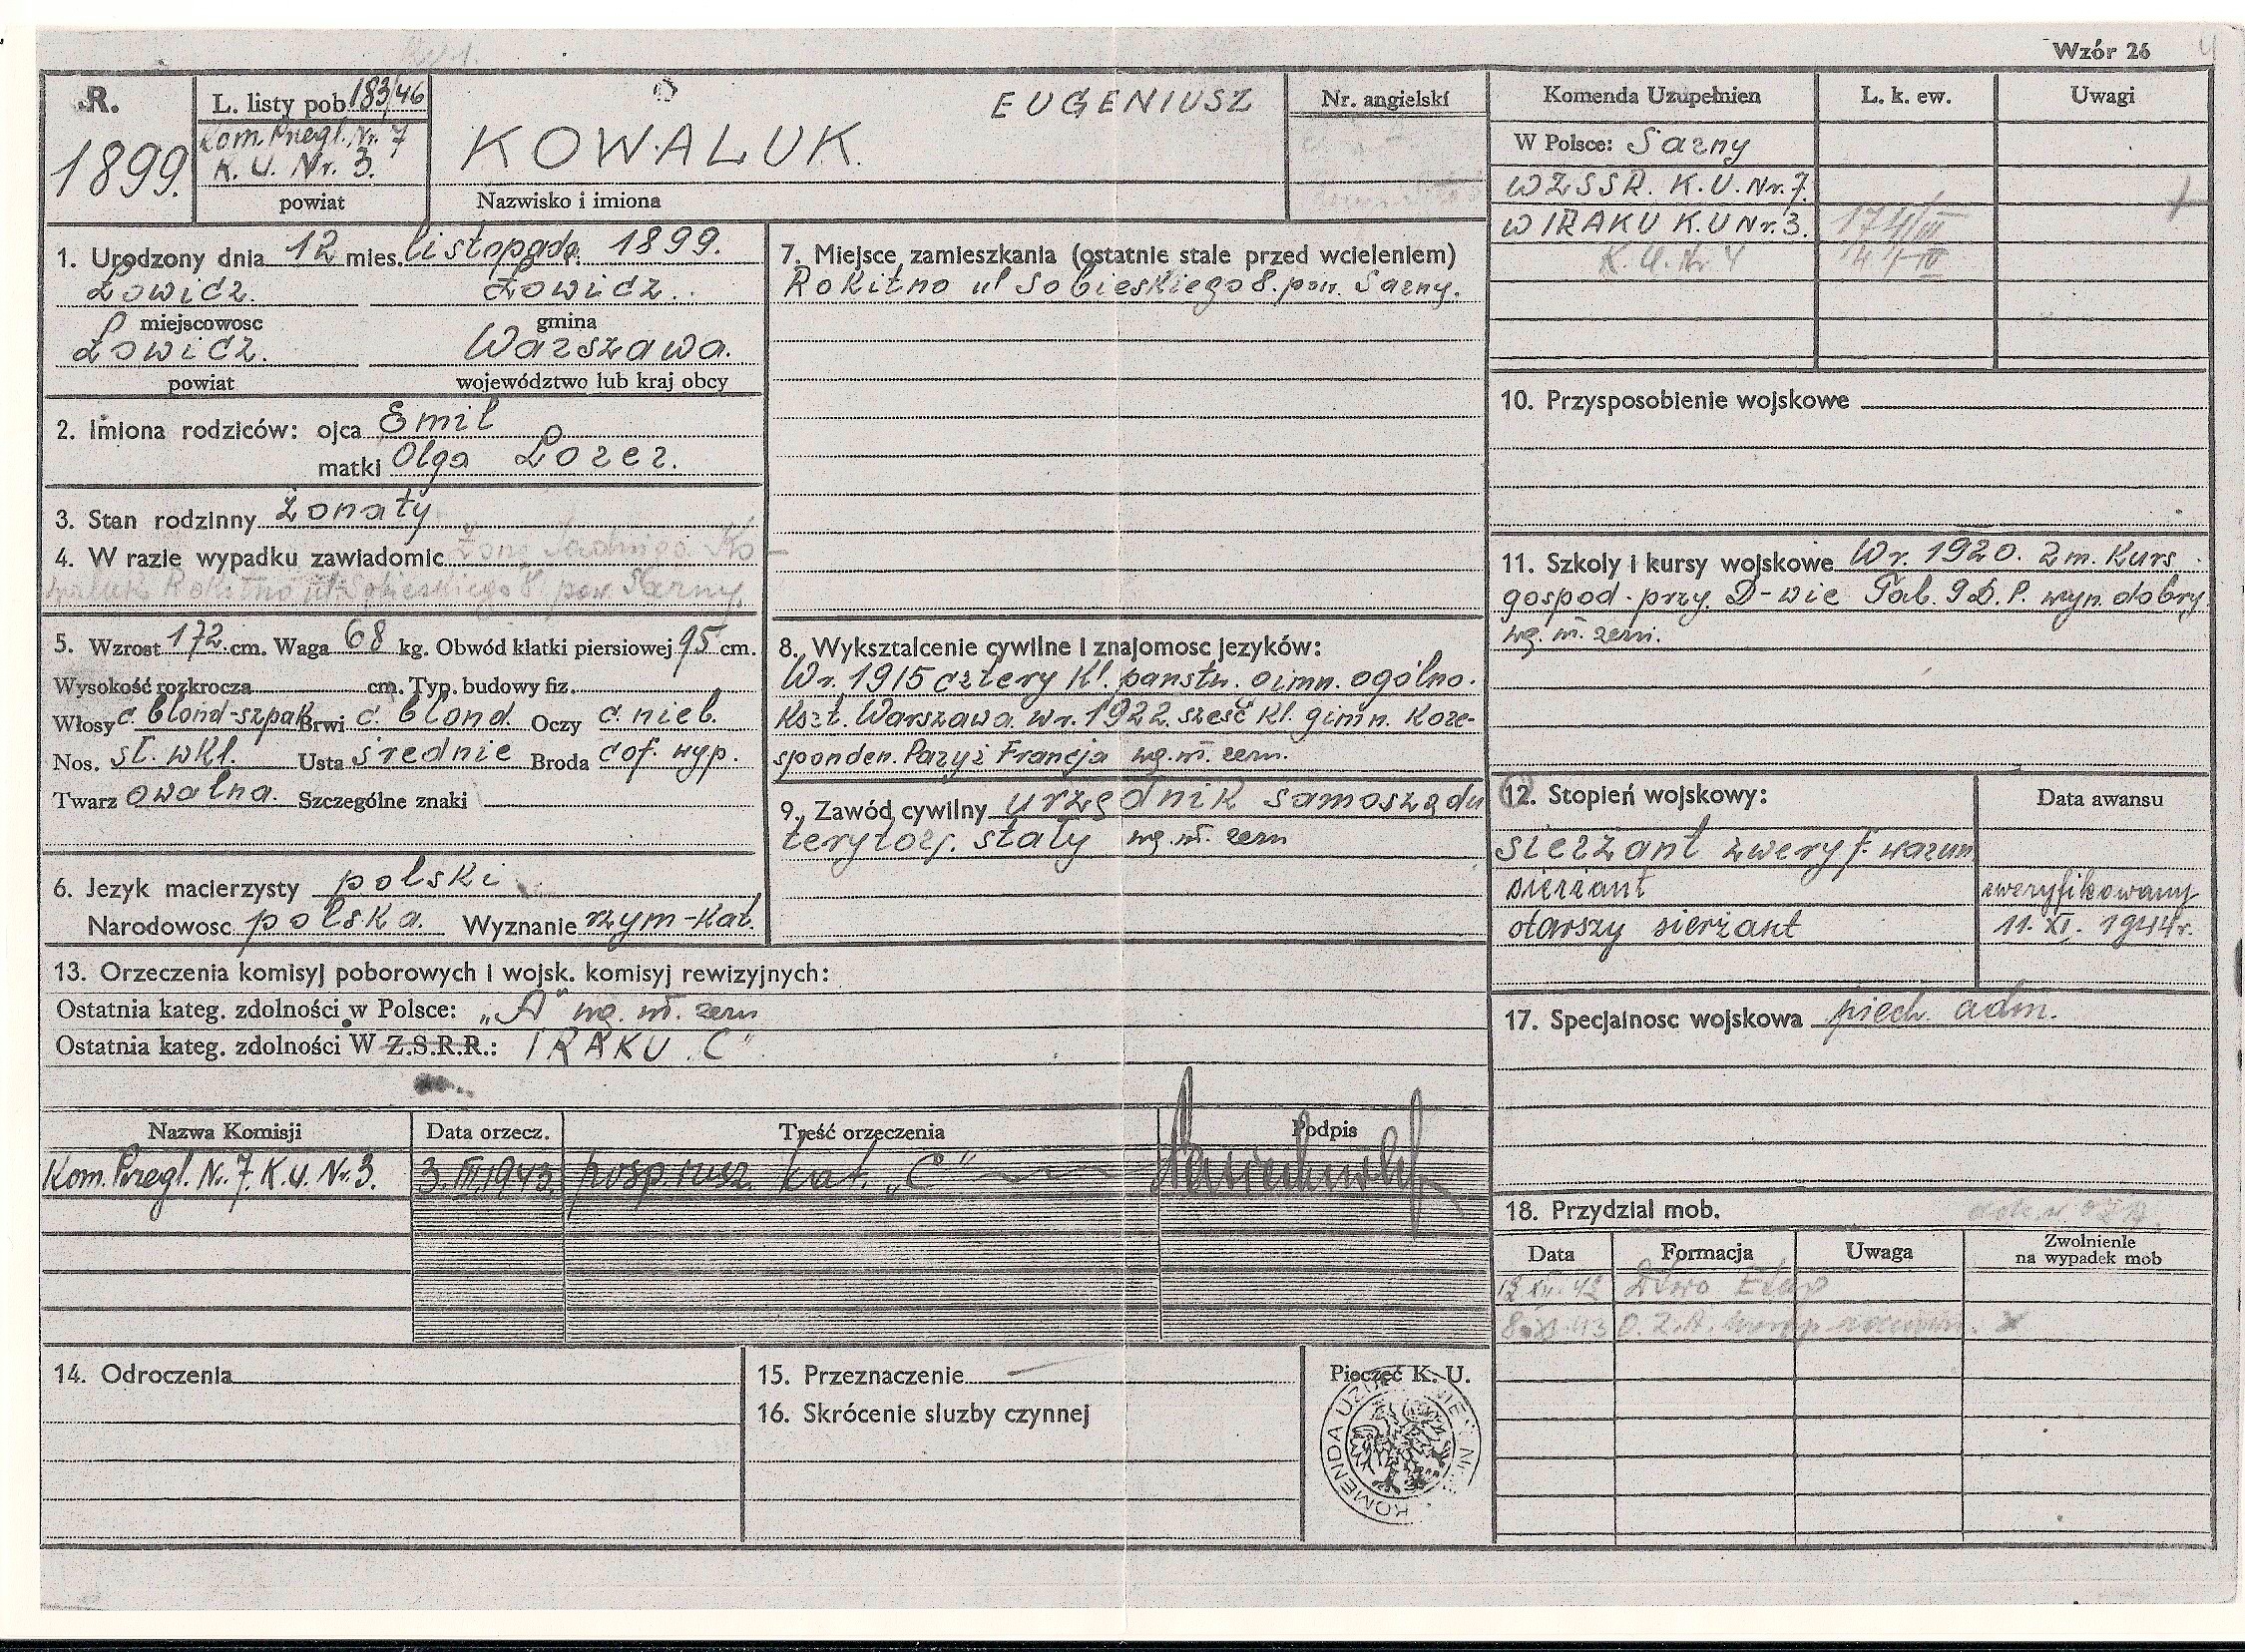 Wzór 26
R.
1899.
L. listy pob. 183/46
Kom. Przegl. Nr. 7
K. U. Nr. 3.
powiat
EUGENIUSZ
KOWALUK.
Nazwisko i imiona
Nr. angielski
Komenda Uzupełnien
L. k. ew.
Uwagi
W Polsce: Sarny
W ZSSR. K. U. Nr. 7.
W IRAKU K. U Nr. 3.
K. U. Nr 4
1. Urodzony dnia 12 mies. listopada 1899.
Łowicz. Łowicz.
miejscowosc gmina
Łowicz. Warszawa.
powiat województwo lub kraj obcy
2. Imiona rodziców: ojca Emil
matki Olga Lorer.
3. Stan rodzinny żonaty
4. W razie wypadku zawiadomic Żonę Jadwigę Ko-
waluk Rokitno ul. Sobieskiego 8. pow. Sarny.
5. Wzrost 172 cm. Waga 68 kg. Obwód klatki piersiowej 95 cm.
Wysokość rozkrocza cm. Typ. budowy fiz.
Włosy c. blond-szpak Brwi c. blond. Oczy c. nieb.
Nos. st. wkl. Usta średnie Broda cof. wyp.
Twarz owalna. Szczególne znaki
6. Jezyk macierzysty polski
Narodowosc polska. Wyznanie rzym-kat.
7. Miejsce zamieszkania (ostatnie stale przed wcieleniem)
Rokitno ul Sobieskiego 8. pow. Sarny.
8. Wyksztalcenie cywilne i znajomosc jezyków:
W r. 1915 cztery kl. państw. gimn. ogólno.
kszt. Warszawa. w r. 1922. sześć kl. gimn. kore-
sponden. Paryż Francja wg. wł. zezn.
9. Zawód cywilny urzędnik samorządu
terytorj. stały wg. wł. zezn
10. Przysposobienie wojskowe
11. Szkoly i kursy wojskowe W r. 1920. 2 m. kurs
gospod. przy. D-wie Tab. 9 D. P. wyn. dobry
wg. wł. zezn.
12. Stopień wojskowy:
Data awansu
sierżant zweryf. warun
sierżant zweryfikowany
starszy sierżant 11. XI. 1944 r.
13. Orzeczenia komisyj poborowych i wojsk. komisyj rewizyjnych:
Ostatnia kateg. zdolności w Polsce: „A" wg. wł. zezn
Ostatnia kateg. zdolności W Z.S.R.R.: IRAKU „C"
Nazwa Komisji Data orzecz. Treść orzeczenia Podpis
Kom. Przegl. Nr. 7. K. U. Nr. 3. 3. III. 1943. posp. rusz. kat. „C"
14. Odroczenia
15. Przeznaczenie
16. Skrócenie sluzby czynnej
Pieczęć K. U.
KOMENDA
17. Specjalnosc wojskowa piech. adm.
18. Przydzial mob.
Data Formacja Uwaga Zwolnienie
na wypadek mob
12 XII. 42 D-two Etap
43 O. Z. A.